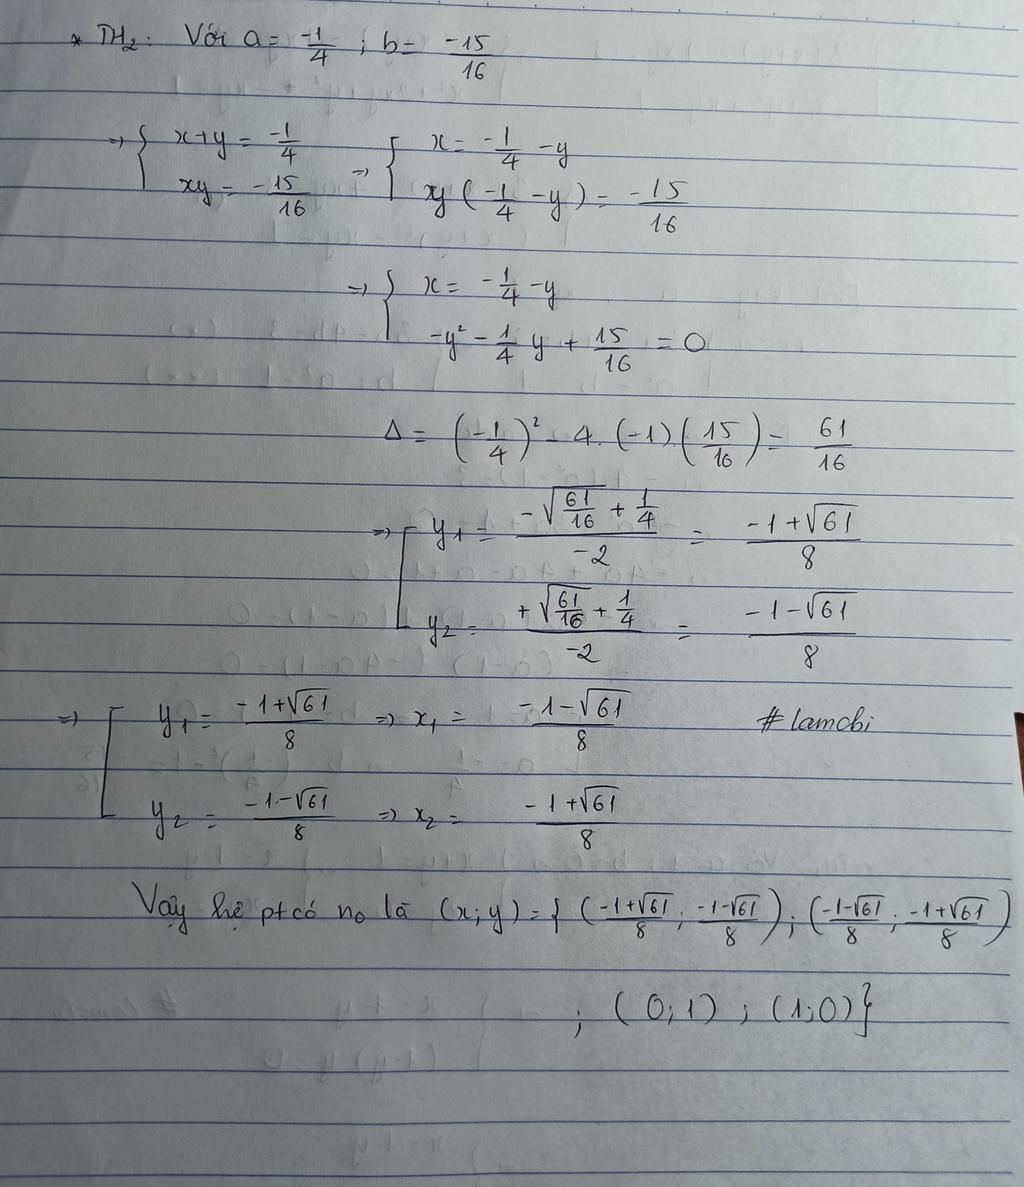 * TH₂: Với a = -1/4 ; b = -15/16
=> { x+y = -1/4 => { x = -1/4 - y
xy = -15/16 xy (-1/4 - y) = -15/16
=> { x = -1/4 - y
-y² - 1/4 y + 15/16 = 0
Δ = (-1/4)² - 4. (-1) (15/16) = 61/16
=> [ y₁ = (-√(61/16) + 1/4)/-2 = (-1+√61)/8
y₂ = (+√(61/16) + 1/4)/-2 = (-1-√61)/8
=> [ y₁ = (-1+√61)/8 => x₁ = (-1-√61)/8 #lamchi
y₂ = (-1-√61)/8 => x₂ = (-1+√61)/8
Vậy hệ pt có no là (x;y) = { ((-1+√61)/8 ; (-1-√61)/8) ; ((-1-√61)/8 ; (-1+√61)/8)
; (0;1) ; (1;0)}